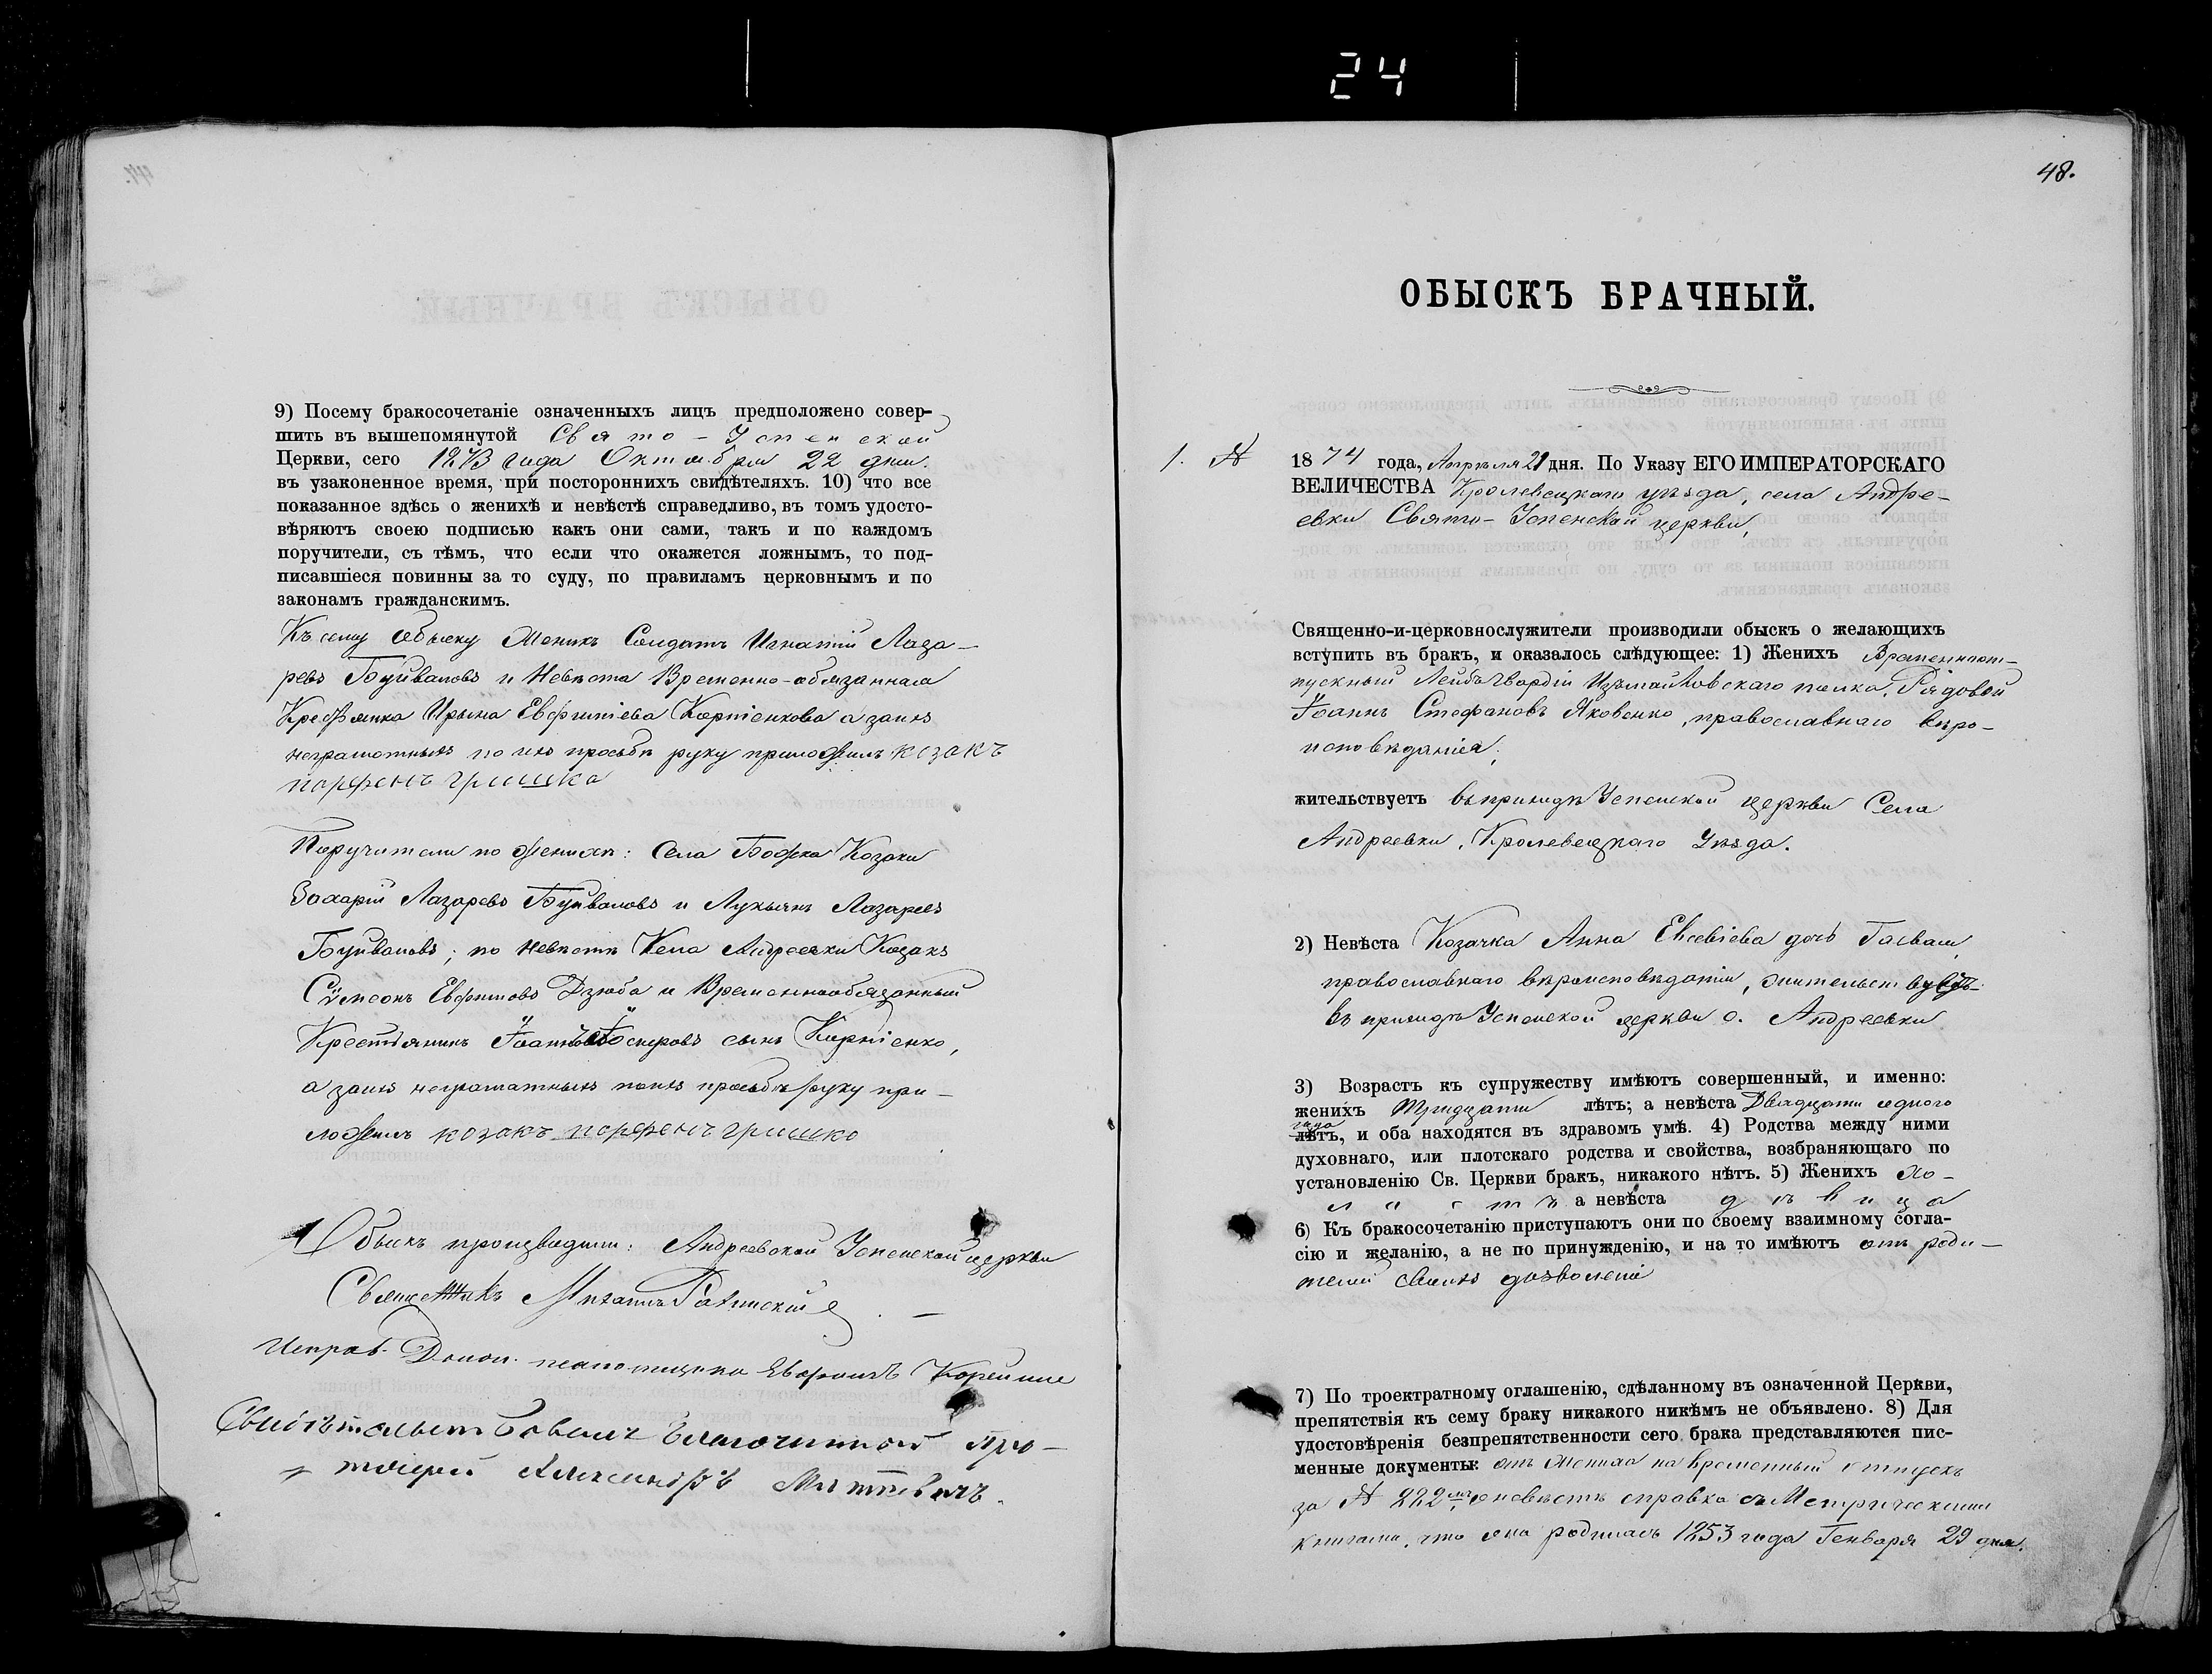 24
9) Посему бракосочетаніе означенныхъ лицъ предположено совер-
шить въ вышепомянутой Свято-Успенской
Церкви, сего 1873 года Октября 22 дня.
въ узаконенное время, при постороннихъ свидѣтеляхъ. 10) что все
показанное здѣсь о женихѣ и невѣстѣ справедливо, въ томъ удосто-
вѣряютъ своею подписью какъ они сами, такъ и по каждомъ
поручители, съ тѣмъ, что если что окажется ложнымъ, то под-
писавшіеся повинны за то суду, по правиламъ церковнымъ и по
законамъ гражданскимъ.
Къ сему обыску Женихъ Солдатъ Игнатій Лаза-
ревъ Буйваловъ и Невѣста Временно-обязанная
Крестьянка Ирына Евфиміева а за нихъ
неграмотныхъ по ихъ прозьбѣ руку приложилъ козакъ
порфенъ гришко
Поручители по женихѣ: Села Божка Козаки
Захарій Лазаревъ Буйваловъ и Лукьянъ Лазаревъ
Буйваловъ; по невѣстѣ Села Андреевки Козакъ
Сѵмеонъ Евфимовъ Дзюба и Временнообязанный
Крестьянинъ сынъ
а за нихъ неграматныхъ по ихъ прозьбѣ руку при-
ложилъ козакъ порфенъ гришко
Обыскъ производили: Андреевской Успенской церкви
Священникъ Михаилъ
Исправ. Долж. псаломщика Евфимъ
Свидѣтельствовалъ Благочинный Про-
тоіерей Александръ
48.
ОБЫСКЪ БРАЧНЫЙ.
1. №
1874 года, Апрѣля 21 дня. По Указу ЕГО ИМПЕРАТОРСКАГО
ВЕЛИЧЕСТВА Кролевецкаго уѣзда, села Андре-
евки Свято-Успенской церкви,
Священно-и-церковнослужители производили обыскъ о желающихъ
вступить въ бракъ, и оказалось слѣдующее: 1) Женихъ Временноот-
пускный Лейбъ Гвардіи Измайловскаго полка, Рядовой
Іоаннъ Стефановъ Яковенко, православнаго вѣро-
исповѣданія,
жительствуетъ въ приходѣ Успенской церкви Села
Андреевки, Кролевецкаго Уѣзда.
2) Невѣста Козачка Анна Евсевіева дочь
православнаго вѣроисповѣданія, жительствуетъ
въ приходѣ Успенской церкви с. Андреевки
3) Возрастъ къ супружеству имѣютъ совершенный, и именно:
женихъ тридцати лѣтъ; а невѣста Двадцати одного
года
лѣтъ, и оба находятся въ здравомъ умѣ. 4) Родства между ними
духовнаго, или плотскаго родства и свойства, возбраняющаго по
установленію Св. Церкви бракъ, никакого нѣтъ. 5) Женихъ хо-
лостъ а невѣста дѣвица
6) Къ бракосочетанію приступаютъ они по своему взаимному согла-
сію и желанію, а не по принужденію, и на то имѣютъ отъ роди-
телей своихъ дозволеніе
7) По троектратному оглашенію, сдѣланному въ означенной Церкви,
препятствія къ сему браку никакого никѣмъ не объявлено. 8) Для
удостовѣренія безпрепятственности сего брака представляются пис-
менные документы: отъ жениха на временный отпускъ
за № 222 о невѣстѣ справка съ Метрическими
книгами, что она родилась 1853 года Генваря 29 дня.